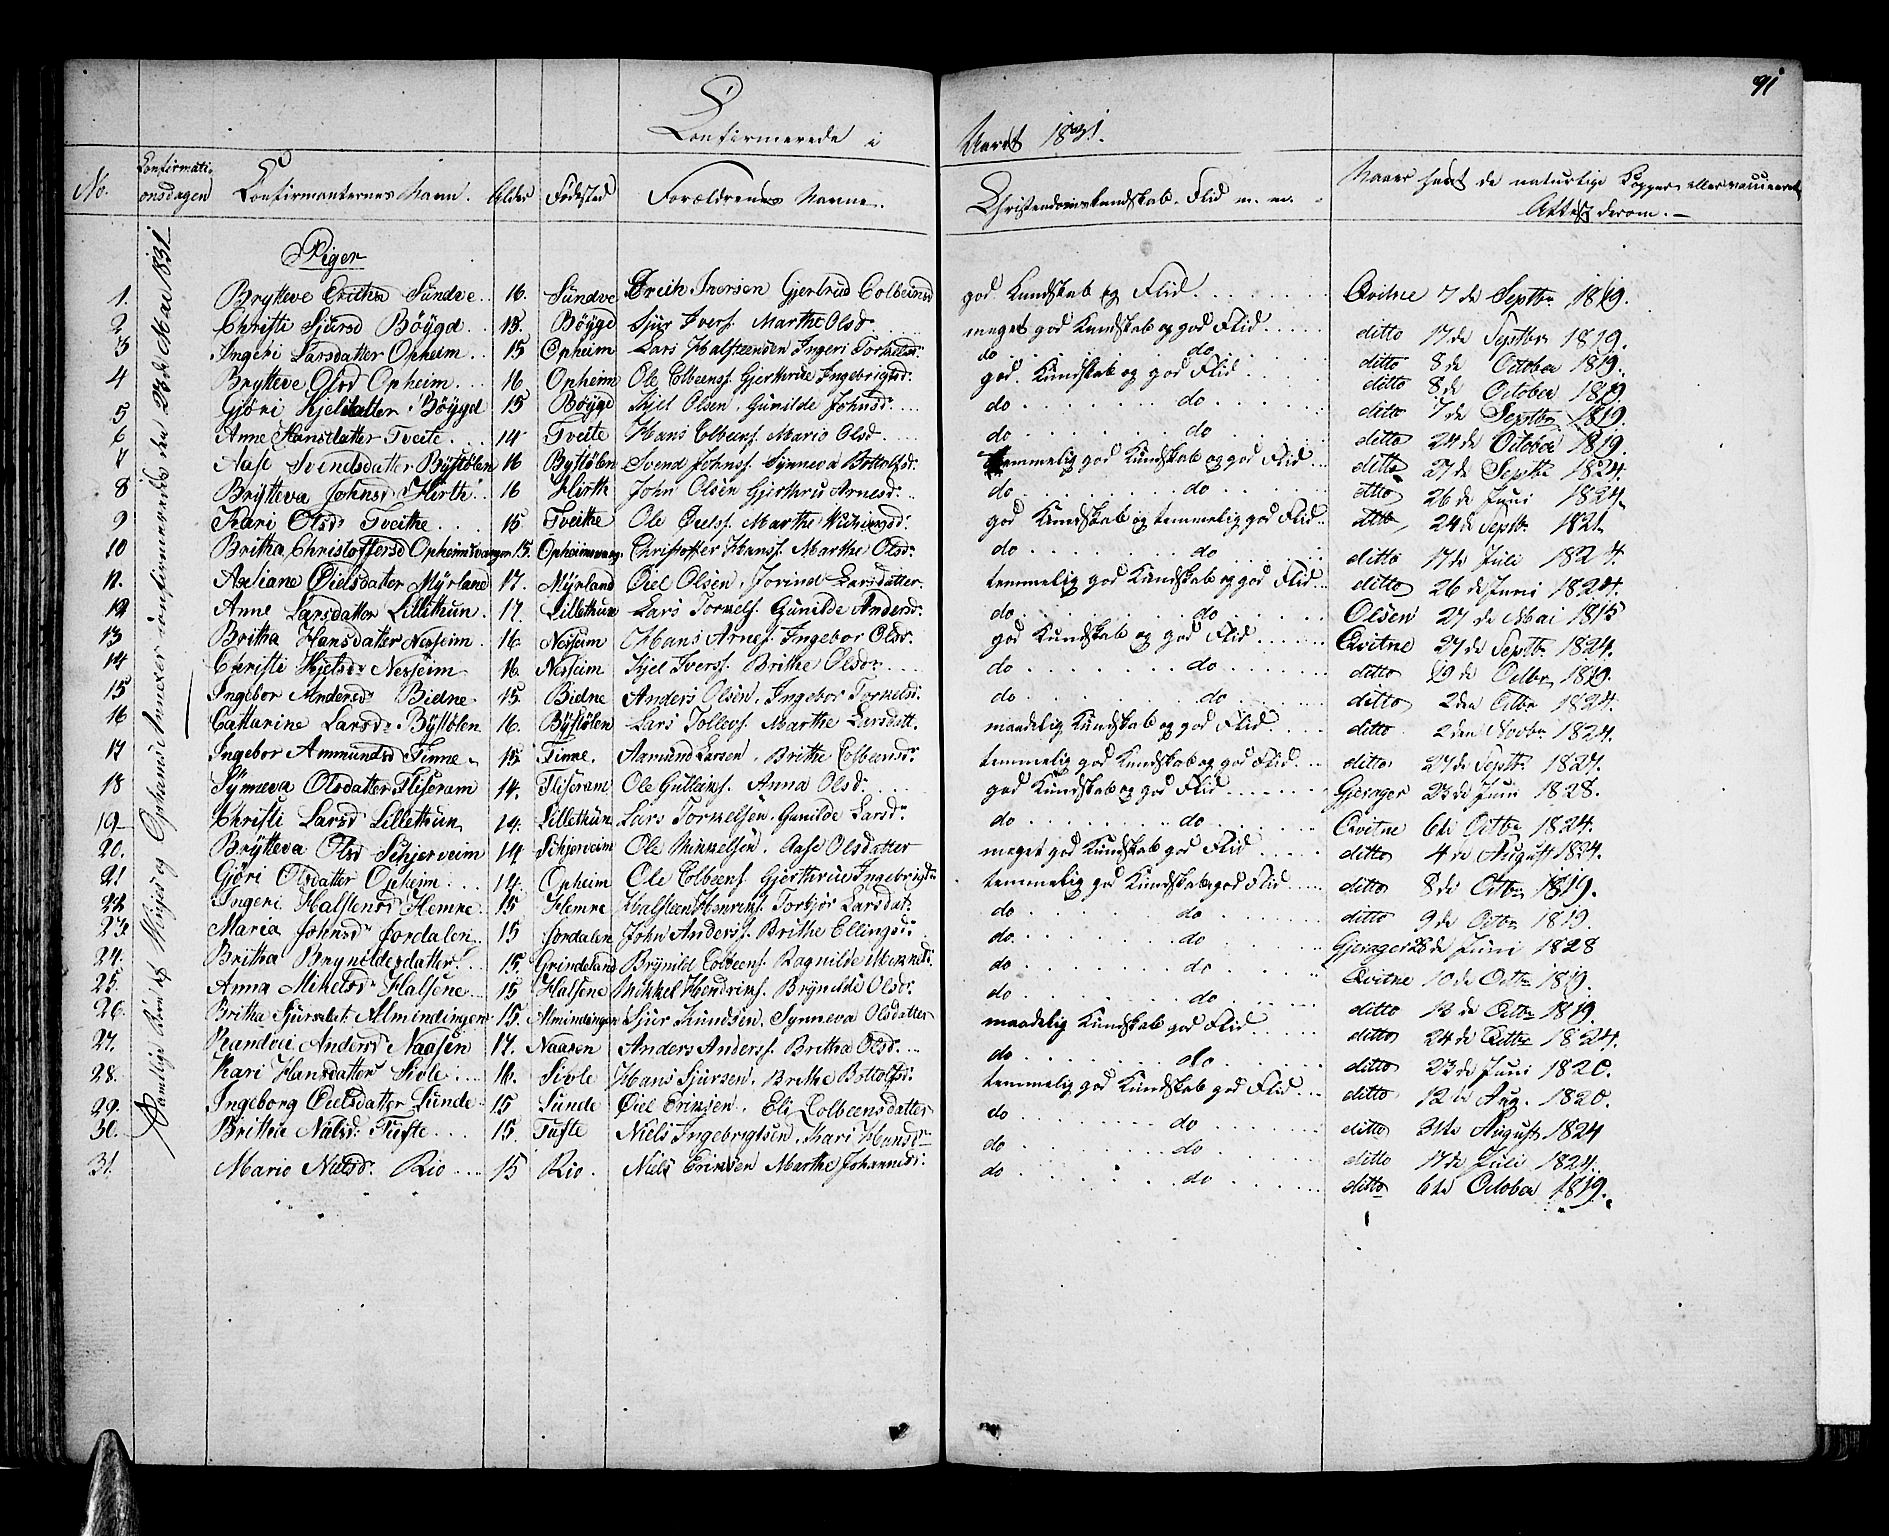 91
Confirmerede i Aaret 1831.
No. Confirmationsdagen Confirmanternes Navn. Alder Fødested Forældrenes Navne. Christendomskundskab, Flid m. m. Naar havt de naturlige Kopper eller vaccineret Attest derom. –
Samtlige Børn af Vinjes og Opheims Annexer confirmerede den 23de Mai 1831
Piger
1. Brytteve Erichsd Sündve 16. Sündve Erich Iversen Gjertrud Colbeinsd god Kundskab og Flid Qvitne 7de Septbr 1819.
2 Christi Sjursd Böÿgd 15. Böÿgd Sjur Ivers. Marthe Olsdr meget god Kundskab og god Flid ditto 17de Septbr 1819.
3 Ingeri Larsdatter Opheim 15 Opheim Lars Halsteensen Ingeri Torkelsdr do do ditto 8de October 1819.
4 Brytteve Olsd Opheim 16 Opheim Ole Colbeens. Gjerthrue Ingebrigtsdr god Kundskab og god Flid ditto 8de October 1819.
5 Gjöri Kjelsdatter Böÿgd 15 Böÿgd Kjel Olsen. Gunilde Johnsdr do do ditto 7de Septbr 1819.
6 Anne Hansdatter Tveite 14 Tveite Hans Colbeens. Mario Olsd do do ditto 24de October 1819.
7 Aase Svendsdatter Bÿstölen 16 Bystölen Svend Johnss. Synneva Bottolfsd temmelig god Kundskab og god Flid ditto 27de Septbr 1824.
8 Brÿtteva Johnsd Hirth 16 Hirth John Olsen Gjerthru Arnesdr do do ditto 26de Juni 1824
9 Kari Olsdr Tveithe 15 Tveithe Ole Oiels. Marthe god Kundskab og temmelig god Flid ditto 24de Septbr 1821
10 Britha Christoffersd Opheimsvangen 15. Opheimsvang. Christoffer Hans. Marthe Olsdr do do ditto 17de Juli 1824.
11. Axliane Oielsdatter Mÿrland 17. Mÿrland Oiel Olsen. Jorind Larsdatter temmelig god Kundskab og god Flid ditto 26de Juni 1824.
12 Anne Larsdatter Lillethun 17. Lillethun Lars Torkels. Gunilde Andersdr do do Olsen 27de Mai 1815
13 Britha Hansdatter Nesheim 16. Nesheim Hans Arnes. Ingebor Olsdr god Kundskab og god Flid Qvitne 27de Septbr 1824.
14 Christi Kjelsdr Nesheim 16 Nesheim Kjel Ivers. Brithe Olsdr do do ditto 19de Octbr 1819.
15 Ingebor Andersdr Bidne 15. Bidne Anders Olsen. Ingebor Torkelsd. do do ditto 2den Octbr 1824.
16 Catharine Larsdr Bÿstölen 16. Bÿstölen Lars Tollevs. Marthe Larsdatt. maadelig Kundskab og god Flid ditto 2den Novbr 1824.
17 Ingebor Ammundsd Finne 15 Finne. Aamund Larsen. Brithe Colbeensdr temmelig god Kundskab og god Flid ditto 27de Septbr 1824.
18 Sÿnneva Olsdatter Fliseram 14. Fliseram Ole Gulleiks. Anna Olsdr god Kundskab og god Flid Gjerager 23de Juni 1828.
19 Christi Larsd Lillethun 14. Lillethun Lars Torkelsen. Gunilde Larsdr do do Qvitne 6te Octbr 1824.
20. Brÿtteva Olsd Schjerveim 14 Schjerveim Ole Mikkelsen. Aase Olsdatter meget god Kundskab god Flid ditto 4de August 1824.
21 Gjöri Olsdatter Opheim 14. Opheim Ole Colbeens. Gjerthrue Ingebrigtdr temmelig god Kundskab god Flid ditto 8de Octbr 1819.
22 Ingeri Halstensd Hemre 15 Hemre Halsteen Henriks. Torbjör Larsdatr do do ditto 9de Octbr 1819.
23 Maria Johnsdr Jordalen 15 Jordalen John Anders. Brithe Ellingsdr do do Gjerager 28de Juni 1828
24. Britha Brynoldsdatter 15. Grindeland Brÿnild Colbeens. Ragnilde do do Qvitne 10de Octbr 1819.
25. Anna Mikelsdr Halsene 15 Halsene Mikkel Hendriks. Brÿnilde Olsdr do do ditto 13de Octbr 1819.
26. Britha Sjursdat. Almindingen 15. Almindingen Sjur Knudsen. Synneva Olsdatter maadelig Kundskab god Flid ditto 24de Octbr 1824.
27. Randvei Andersd Naasen 17. Naasen Anders Anders. Britha Olsd. do do ditto 23de Juni 1820.
28. Kari Hansdatter Sivle 16. Sivle Hans Sjursen. Brithe Bottolfsdr temmelig god Kundskab god Flid ditto 12de Aug. 1820.
29. Ingeborg Oielsdatter Sunde 15 Sunde Oiel Eriksen. Eli Colbeensdatter do do ditto 31te August 1824
30. Britha Nilsdr Tufte 15. Tufte Niels Ingebrigtsen. Kari Hansdr do do ditto 17de Juli 1824.
31. Mario Nielsdr Rio 15 Rio. Niels Eriksen Marthe Johannesdr do do ditto 6te October 1819.